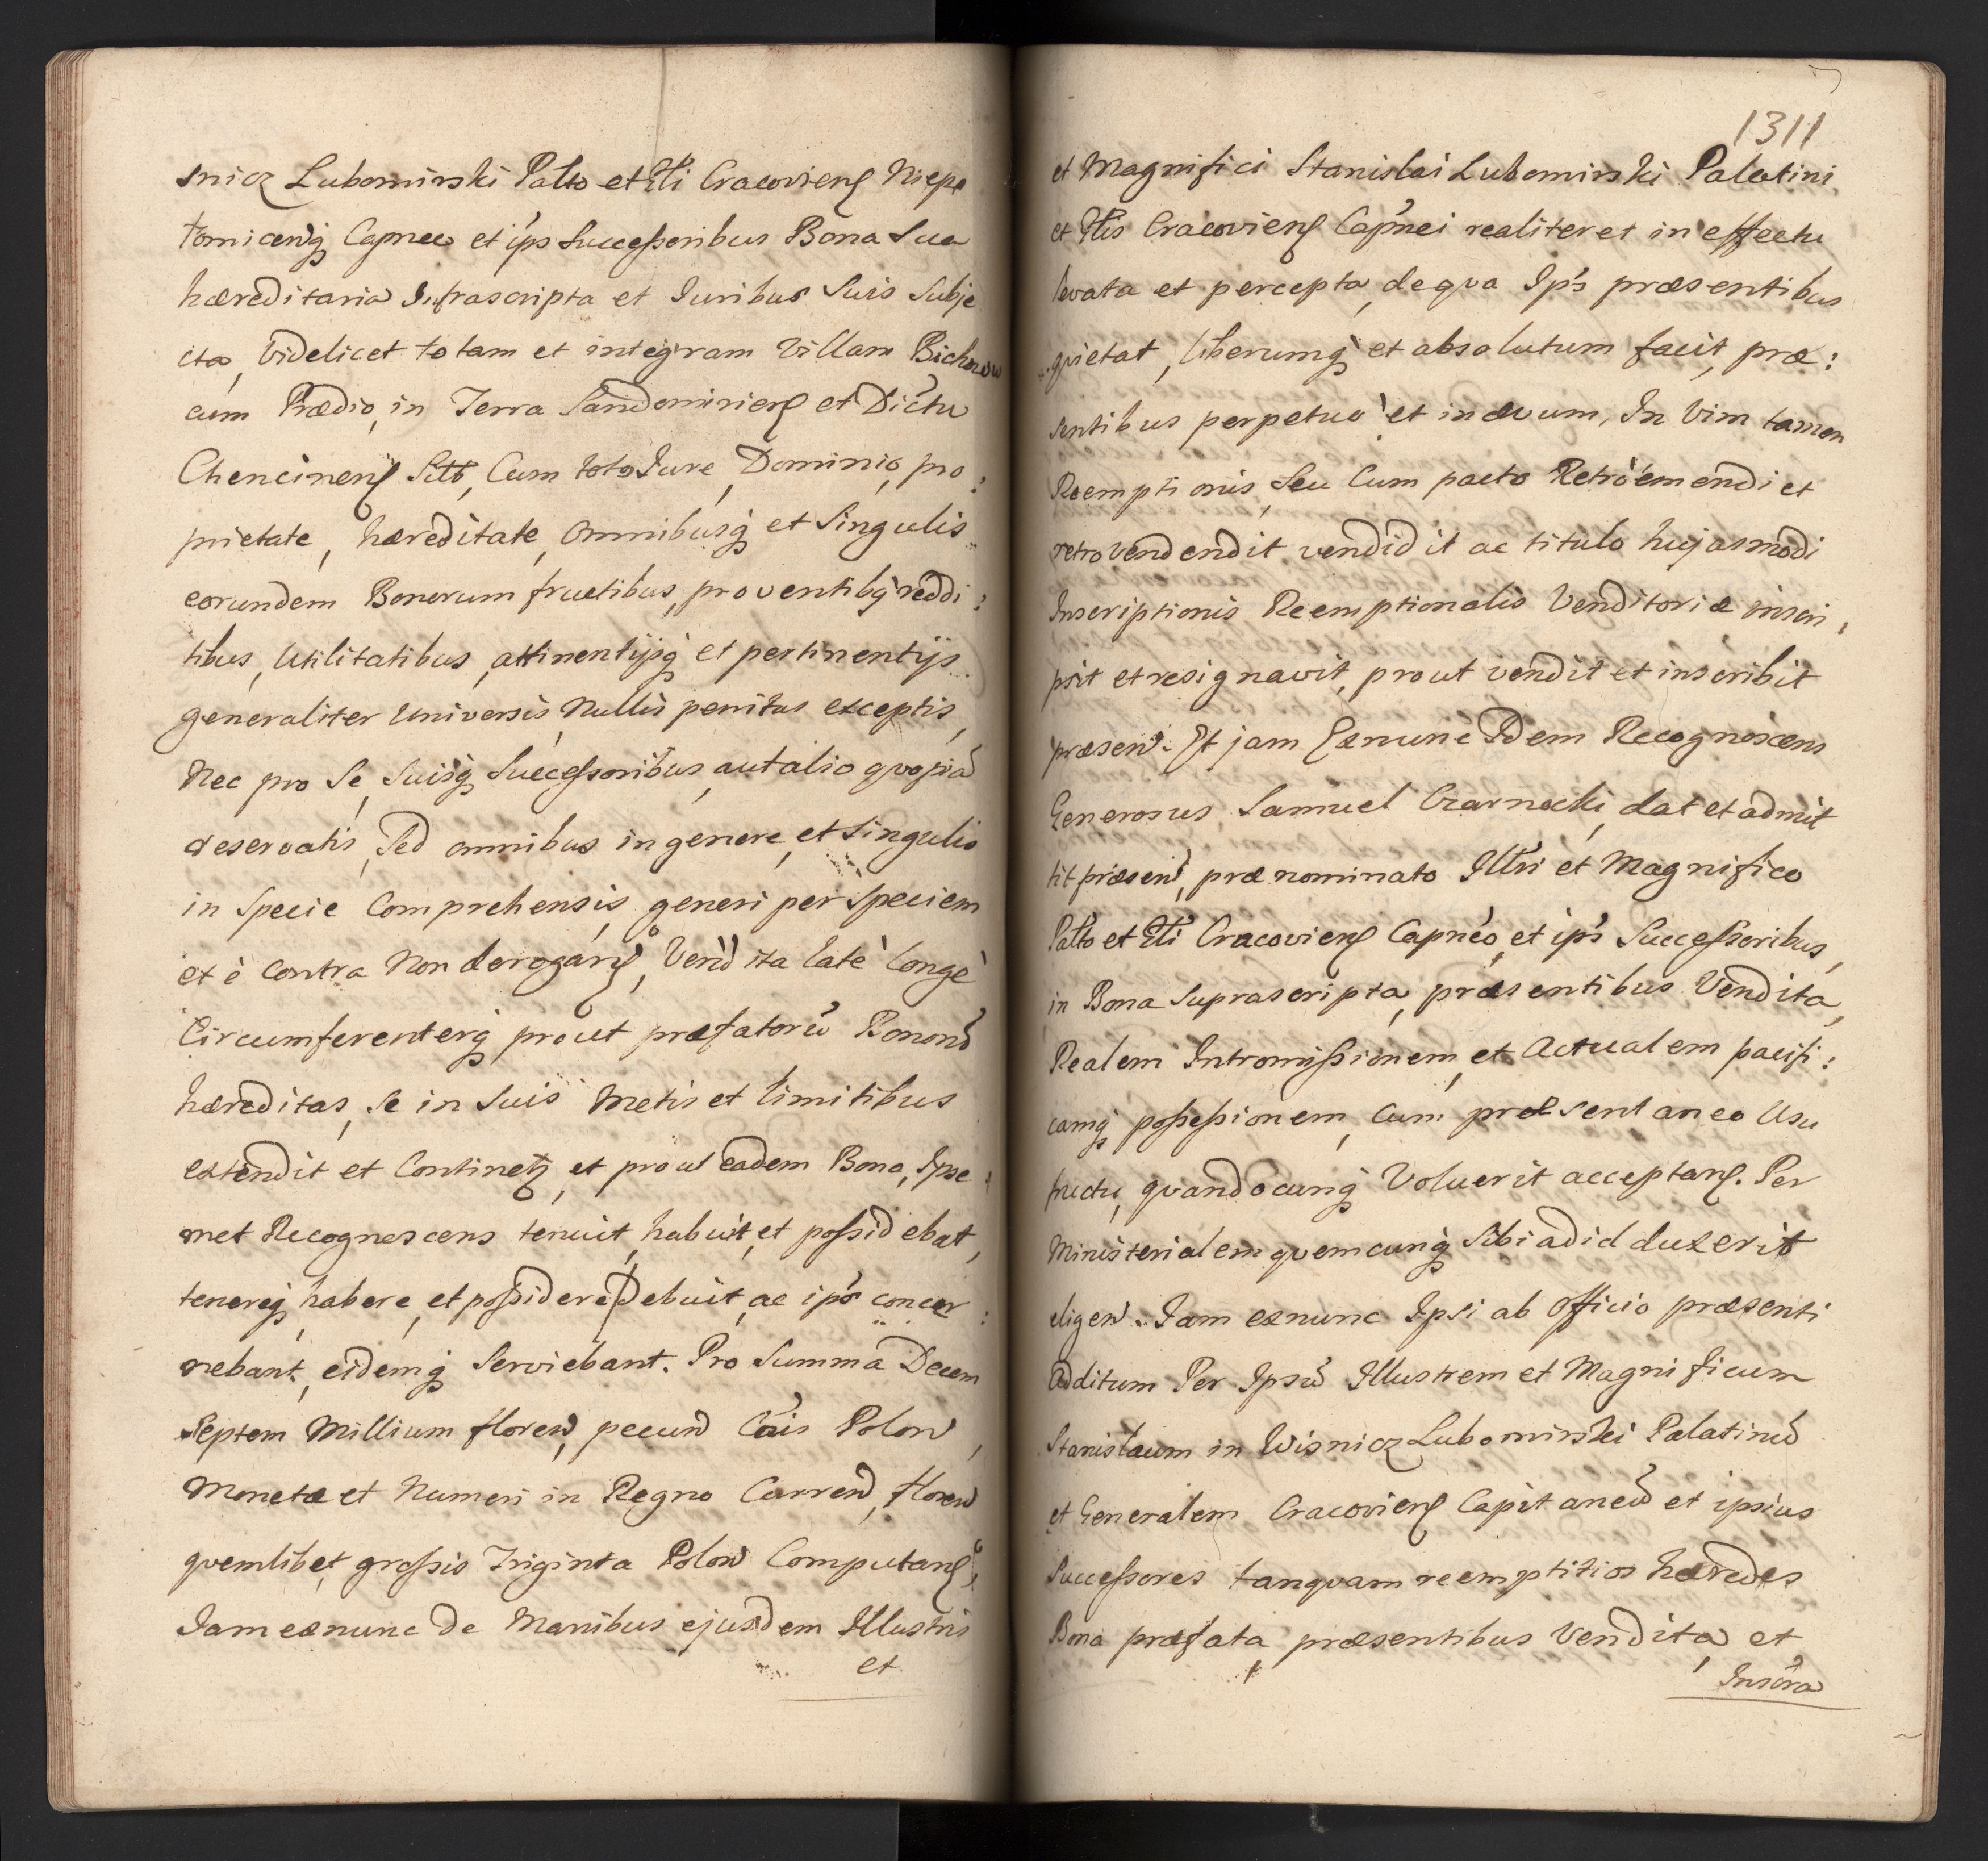 snicz Lubomirski Palto et Gli Cracoviens Niepo
tomicensq Capneo et ips Successoribus Bona Sua
hæreditaria Infrascripta et Juribus Suis Subje
cta, Videlicet totam et integram Villam Bichniow
cum Prædio, in Terra Sandomiriens et Dictu
Chencinens Sitt, Cum toto Jure, Dominio, pro:
prietate, hæreditate, Omnibusq et Singulis
eorundem Bonorum fructibus, proventibq reddi:
tibus, Utilitatibus, attinentijsq et pertinentijs
generaliter Universis, Nullis penitus exceptis,
Nec pro Se, Suisq Successoribus, aut alio qvopiam
reservatis, Sed omnibus in genere, et Singulis
in Specie Comprehensis, generi per Speciem
et è Contra Non derogans, Vend ita latè longè
Circumferenterq prout præfatorũ Bonorũ
hæreditas, Se in Suis Metis et limitibus
extendit et Continetz, et prout eadem Bona, Ipse
met Recognoscens tenuit, habuit, et possidebat,
tenereq, habere, et possidere Debuit, ac ips concer:
nebant, eidemq Serviebant. Pro Summa Decem
Septem Millium floren, pecun Cois Polon,
Monetæ et Numeri in Regno Curren, floren
qvemlibet, grossis Triginta Polon Computans,
Jam exnunc De Manibus ejusdem Illustris
et
1311
et Magnifici Stanislai Lubomirski Palatini
et Glis Cracoviens Capnei realiter et in effectu
levata et percepta, de qva Ips præsentibus
qvietat, liberumq et absolutum facit, præ:
sentibus perpetuo et in ævum, In Vim tamen
Reemptionis, Seu Cum pacto Retròemendi et
retrovendendit vendidit ac titulo hujasmodi
Inscriptionis Reemptionalis Venditoriæ inscri,
psit et resignavit, prout vendit et inscribit
præsen. Et jam Exnunc Idem Recognoscens
Generosus Samuel Czarnocki, dat et admit
tit præsen, prænominato Illri et Magnifico
Palto et Gli Cracoviens Capneo, et ips Successoribus,
in Bona Suprascripta, præsentibus Vendita,
Realem Intromissionem, et Actualem pacifi:
camq possessionem, Cum præsentaneo Usu
fructu, qvandocunq Voluerit acceptans. Per
Ministerialem qvemcunq Sibi ad id duxerit
eligen. Jam exnunc Ipsi ab Officio præsenti
additum Per Ipsũ Illustrem et Magnificum
Stanislaum in Wisnicz Lubomirski Palatinũ
et Generalem Cracoviens Capitaneũ et ipsius
Successores tanqvam reemptitios hæredes
Bona præfata, præsentibus Vendita, et
Inscra